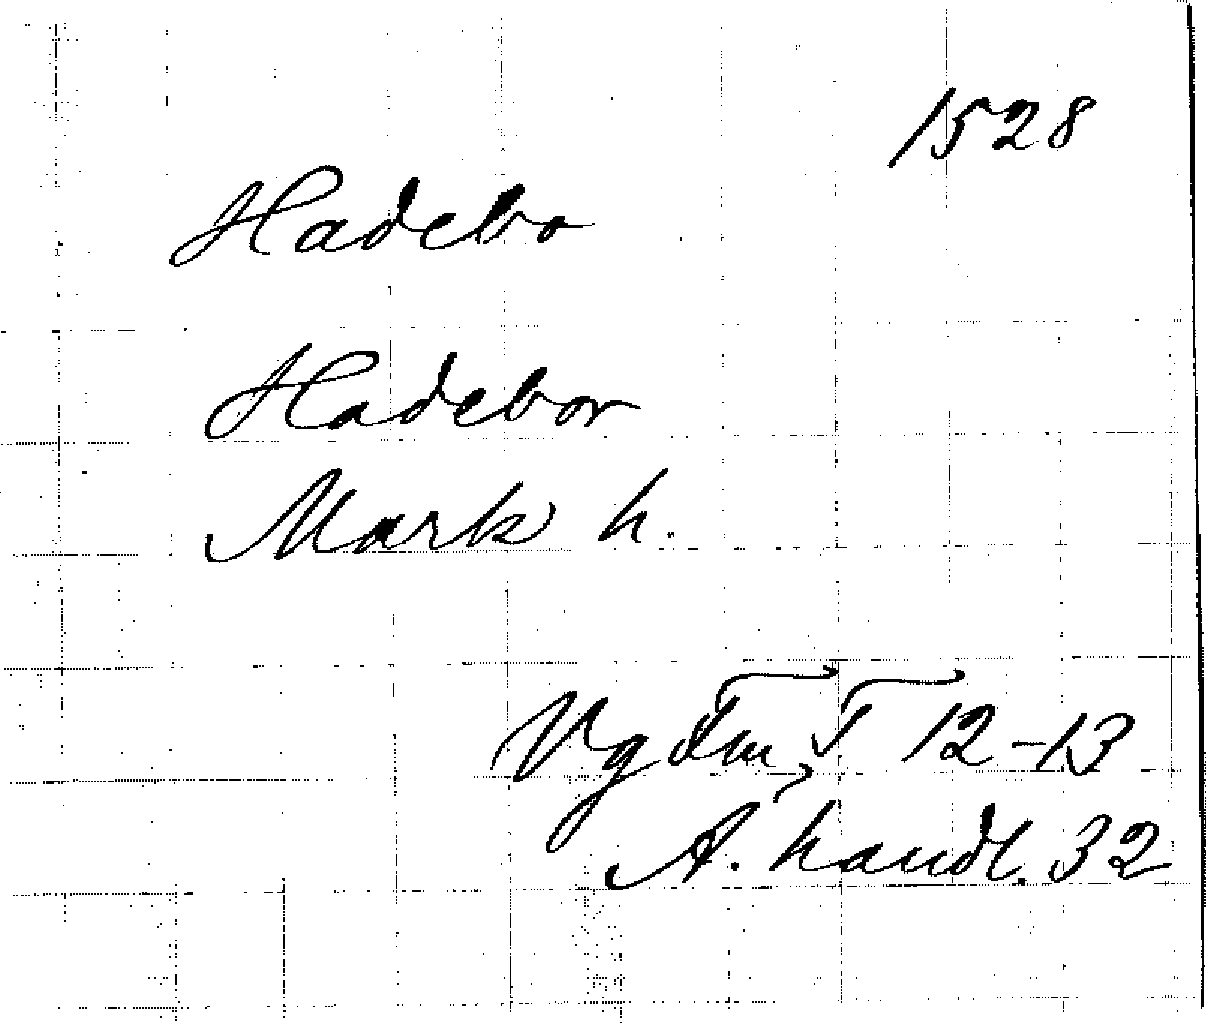 1528
Hadebo
Hadebor
Mark h.
Vg Fm, T 12-13
A. handl. 32